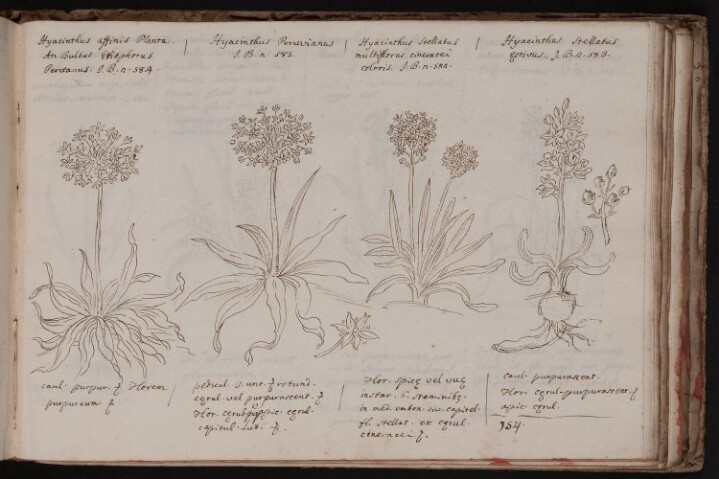 Hyacinthus affinis Planta
An Bulbus eriophorus
Peruanus. J.B. n. 584.
Hyacinthus Peruvianus
J.B. n. 585.
Hyacinthus Stellatus
multiflorus cineracei
coloris. J.B. n. 582.
Hyacinthus Stellatus
estivus. J.B. n. 583.
caul. purpur. Florem
purpureum
pedicul. 2. unc. rotund.
cærul vel purpurascent.
Flor. cærul.
capitul. lut.
Flor. spicæ vel uvæ
instar. 6. staminibg.
in med. umbon. siv. capitel.
fl. stellat. ex cærul
cineracei
caul. purpurascent.
Flor. cærul-purpurascent.
apic. cærul.
154.